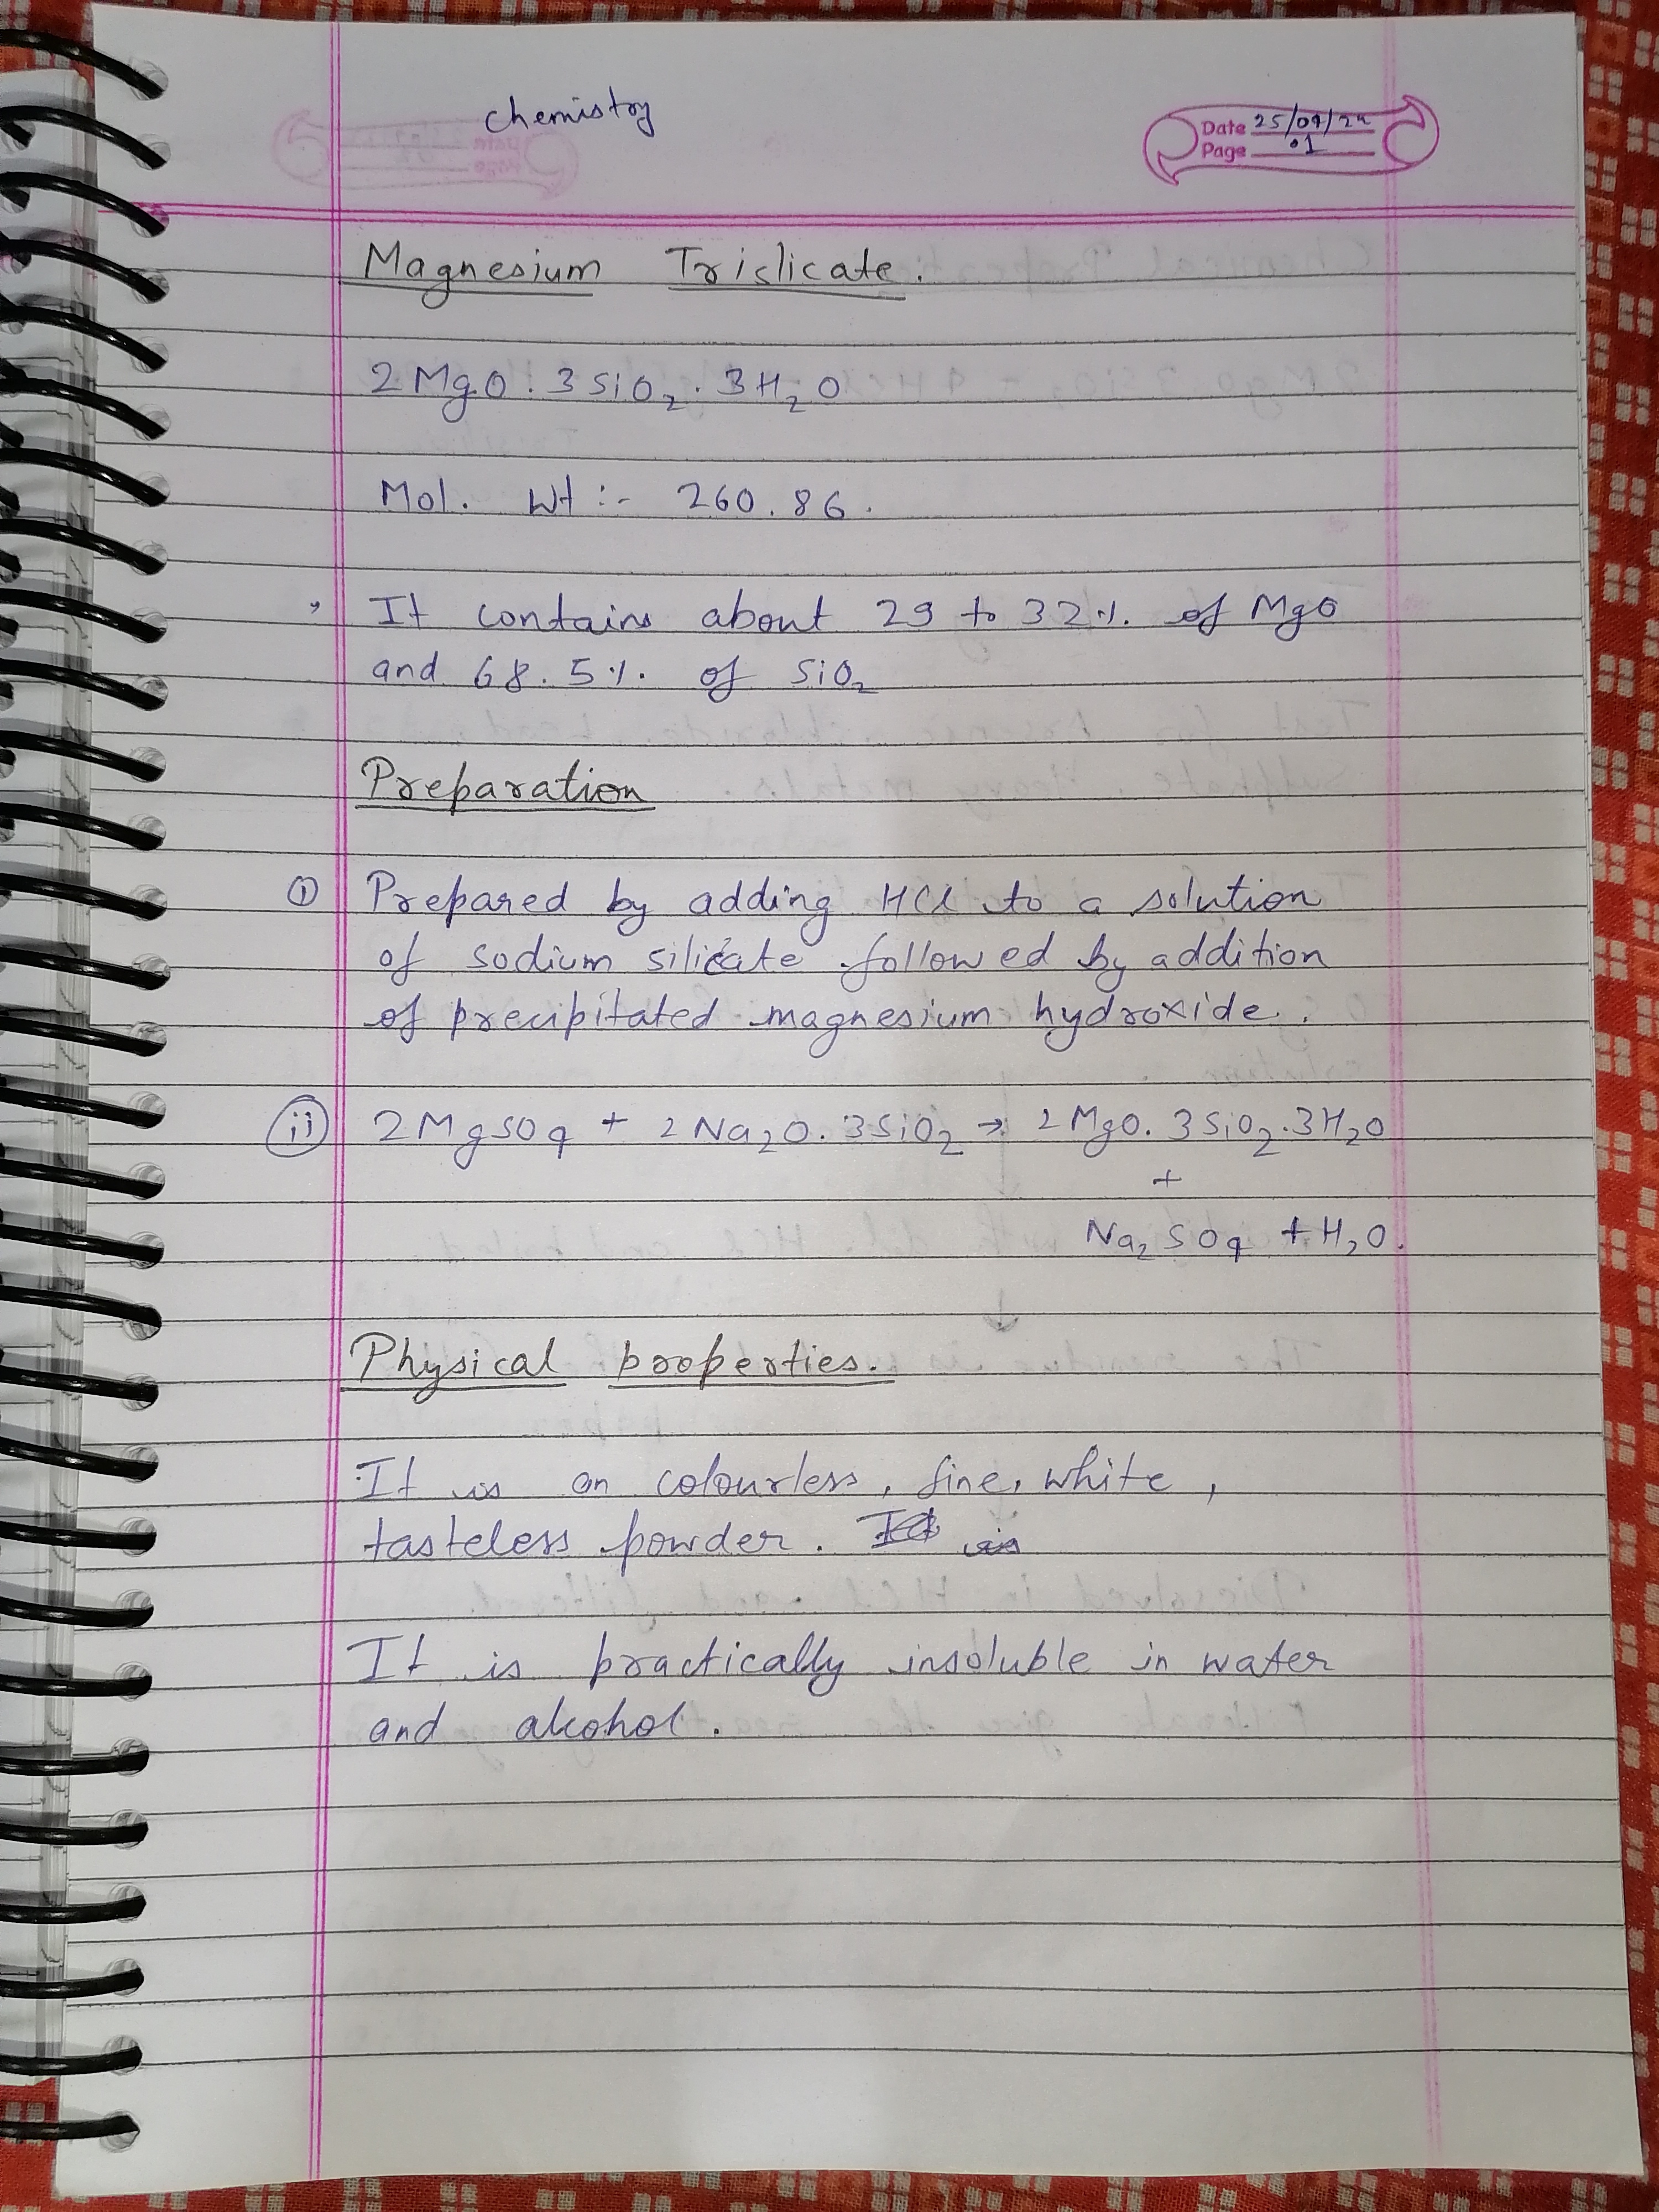 chemistry
Date 25/09/24
Page 01
Magnesium Trislicate.
2MgO. 3SiO₂. 3H₂O
Mol. Wt :- 260.86.
It contains about 29 to 32%. of MgO
and 68.5%. of SiO₂
Preparation
① Prepared by adding HCl to a solution
of sodium silicate followed by addition
of precipitated magnesium hydroxide.
ⅱ 2MgSO₄ + 2Na₂O. 3SiO₂ → 2MgO. 3SiO₂.3H₂O
+
Na₂SO₄ + H₂O.
Physical properties.
It is an colourless, fine, white,
tasteless powder.
It is practically insoluble in water
and alcohol.